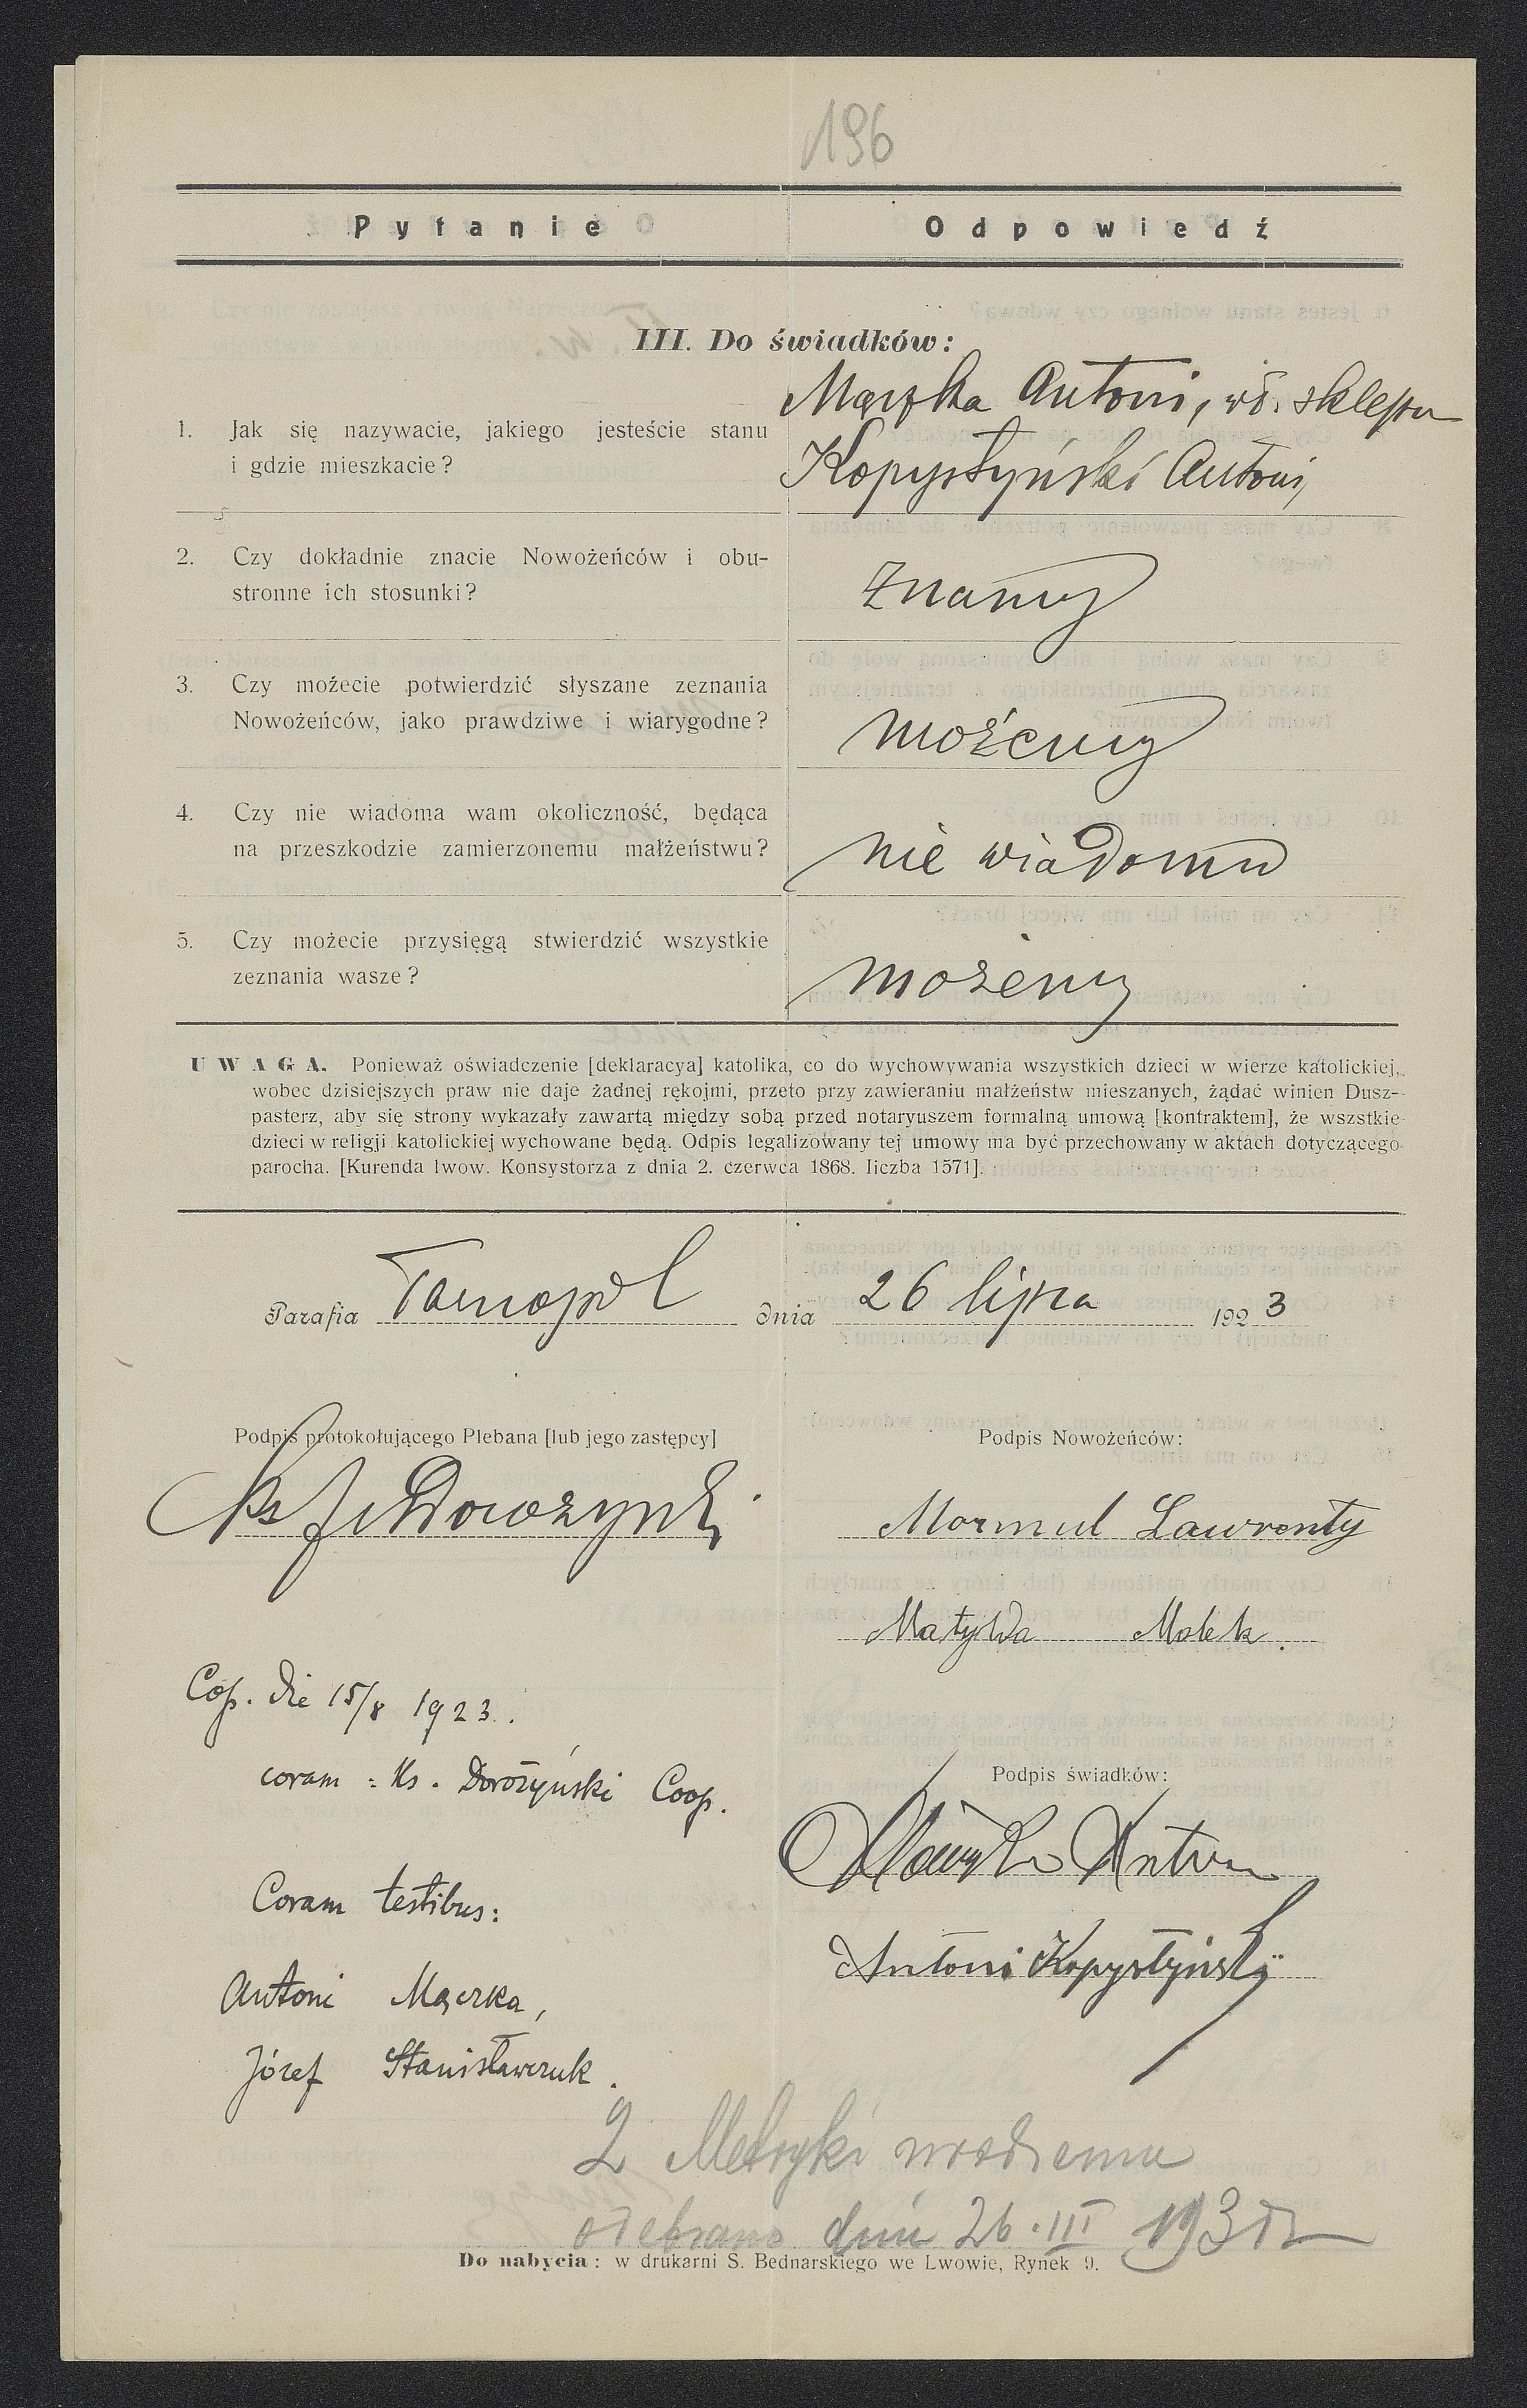 196
Pytanie Odpowiedź
III. Do świadków:
1. Jak się nazywacie, jakiego jesteście stanu
i gdzie mieszkacie?
Mączka Antoni, wł. sklepu
Kopystyński Antoni,
2. Czy dokładnie znacie Nowożeńców i obu-
stronne ich stosunki?
znamy
3. Czy możecie potwierdzić słyszane zeznania
Nowożeńców, jako prawdziwe i wiarygodne?
możemy
4. Czy nie wiadoma wam okoliczność, będąca
na przeszkodzie zamierzonemu małżeństwu?
nie wiadomo
5. Czy możecie przysięgą stwierdzić wszystkie
zeznania wasze?
możemy
UWAGA. Ponieważ oświadczenie [deklaracya] katolika, co do wychowywania wszystkich dzieci w wierze katolickiej,
wobec dzisiejszych praw nie daje żadnej rękojmi, przeto przy zawieraniu małżeństw mieszanych, żądać winien Dusz-
pasterz, aby się strony wykazały zawartą między sobą przed notaryuszem formalną umową [kontraktem], że wszstkie
dzieci w religji katolickiej wychowane będą. Odpis legalizowany tej umowy ma być przechowany w aktach dotyczącego
parocha. [Kurenda lwow. Konsystorza z dnia 2. czerwca 1868. liczba 1571].
Parafia Tarnopol dnia 26 lipca 1923
Podpis protokołującego Plebana [lub jego zastępcy]
Podpis Nowożeńców:
Ks
Mormul Lawrenty
Matylda Molek.
Cop. die 15/8 1923.
coram: Ks. Dorożyński Coop.
Podpis świadków:
Mączka Antoni
Coram testibus:
Antoni Kopystyński
Antoni Mączka,
Józef Stanisławczuk.
2 Metryki urodzenia
odebrano dnia 26.III
Do nabycia: w drukarni S. Bednarskiego we Lwowie, Rynek 9.